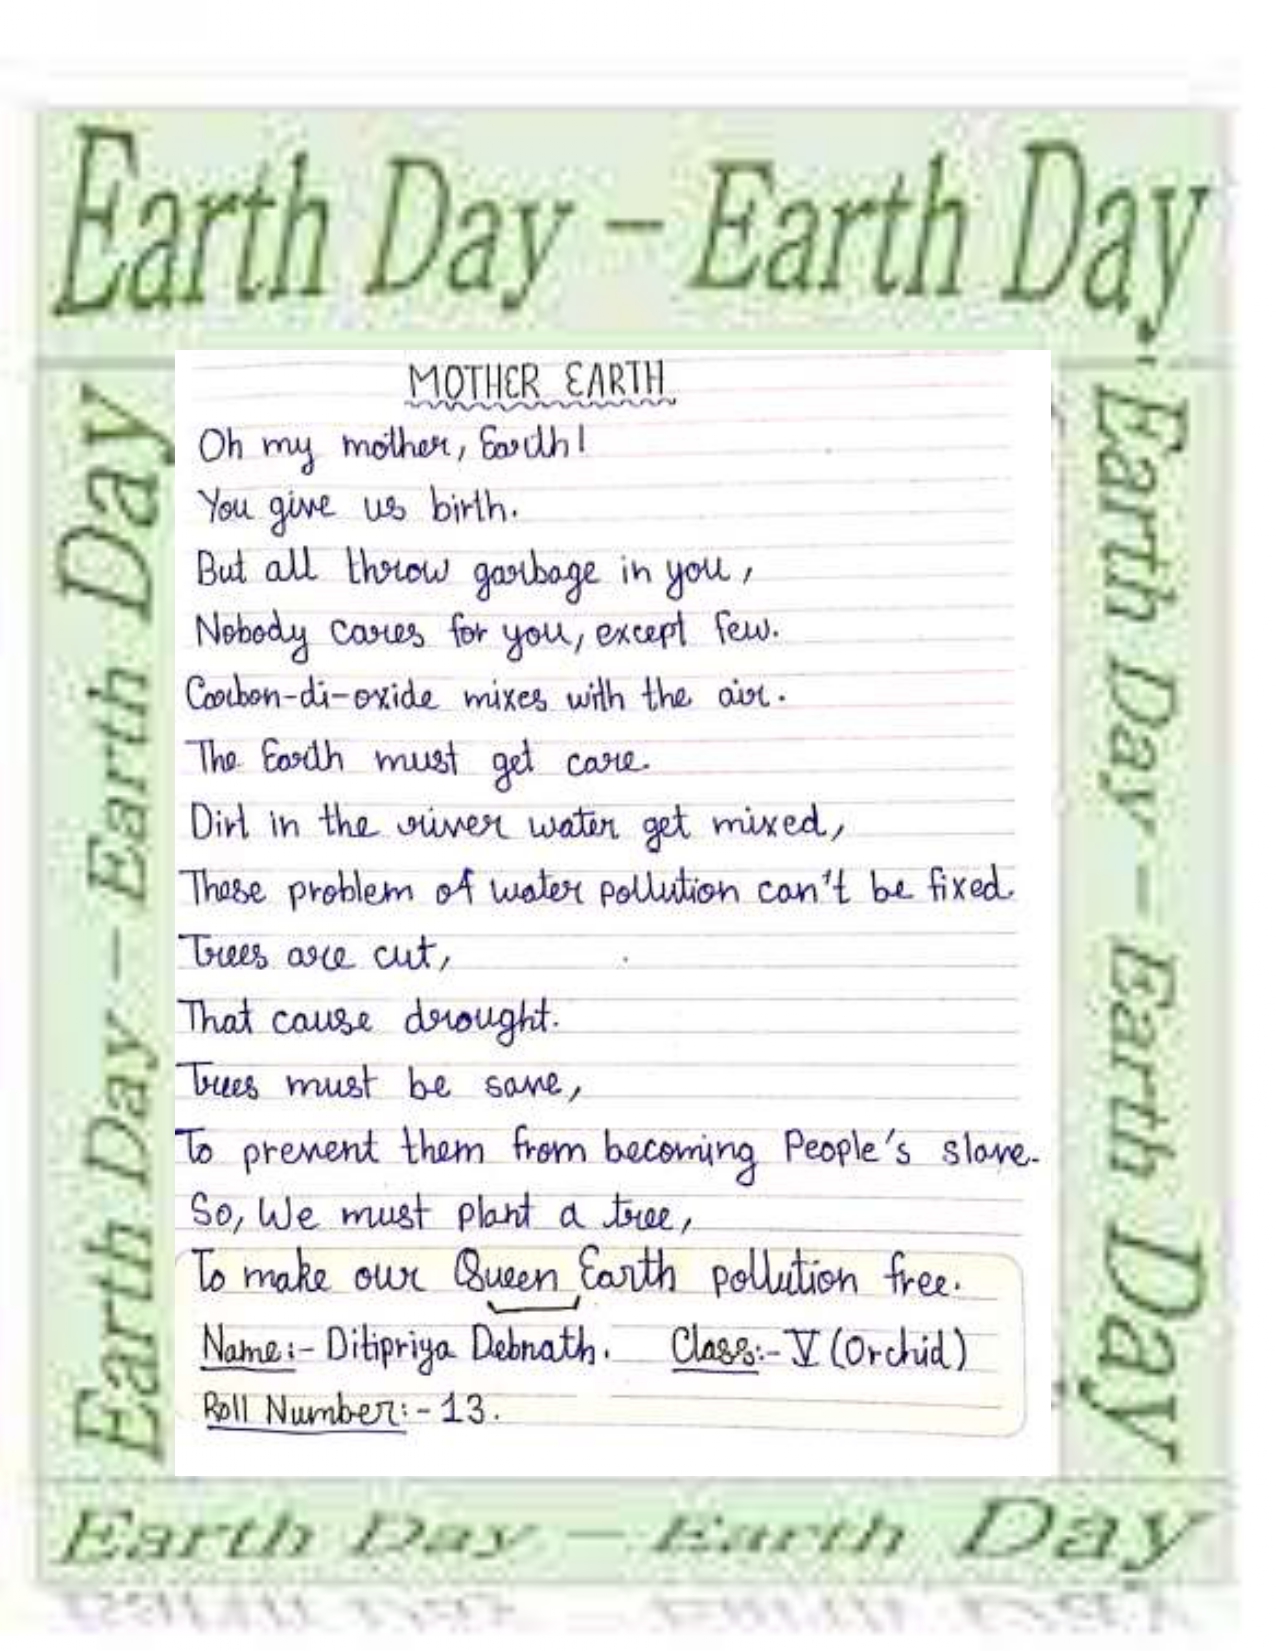 Earth Day – Earth Day
Earth Day – Earth Day
Earth Day – Earth Day
MOTHER EARTH
Oh my mother, Earth!
You give us birth.
But all throw garbage in you,
Nobody cares for you, except few.
Carbon-di-oxide mixes with the air.
The Earth must get care.
Dirt in the river water get mixed,
These problem of water pollution can't be fixed.
Trees are cut,
That cause drought.
Trees must be save,
To prevent them from becoming People's slave.
So, We must plant a tree,
To make our Queen Earth pollution free.
Name:- Ditipriya Debnath. Class:- V (Orchid)
Roll Number:- 13.
Earth Day – Earth Day